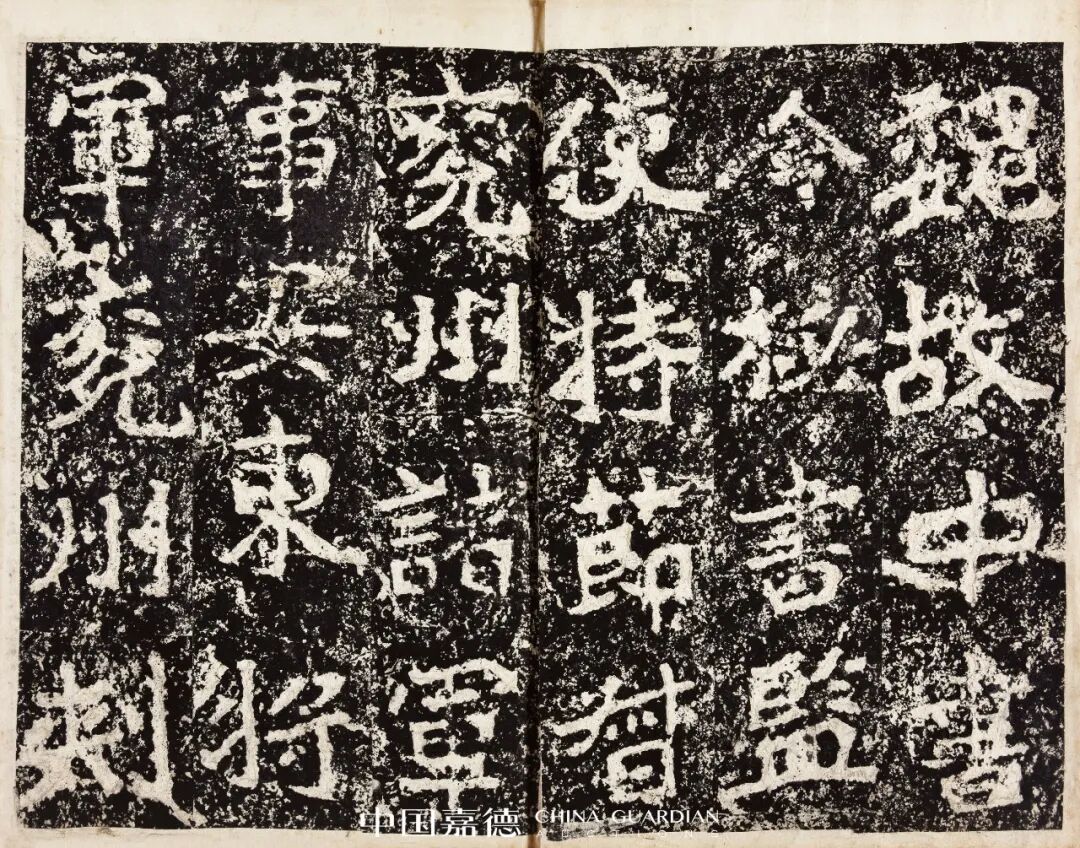 魏故中書
令秘書監
使持節督
兗州諸軍
事安東將
軍兗州刺
中国嘉德 CHINA GUARDIAN
AUCTIONS